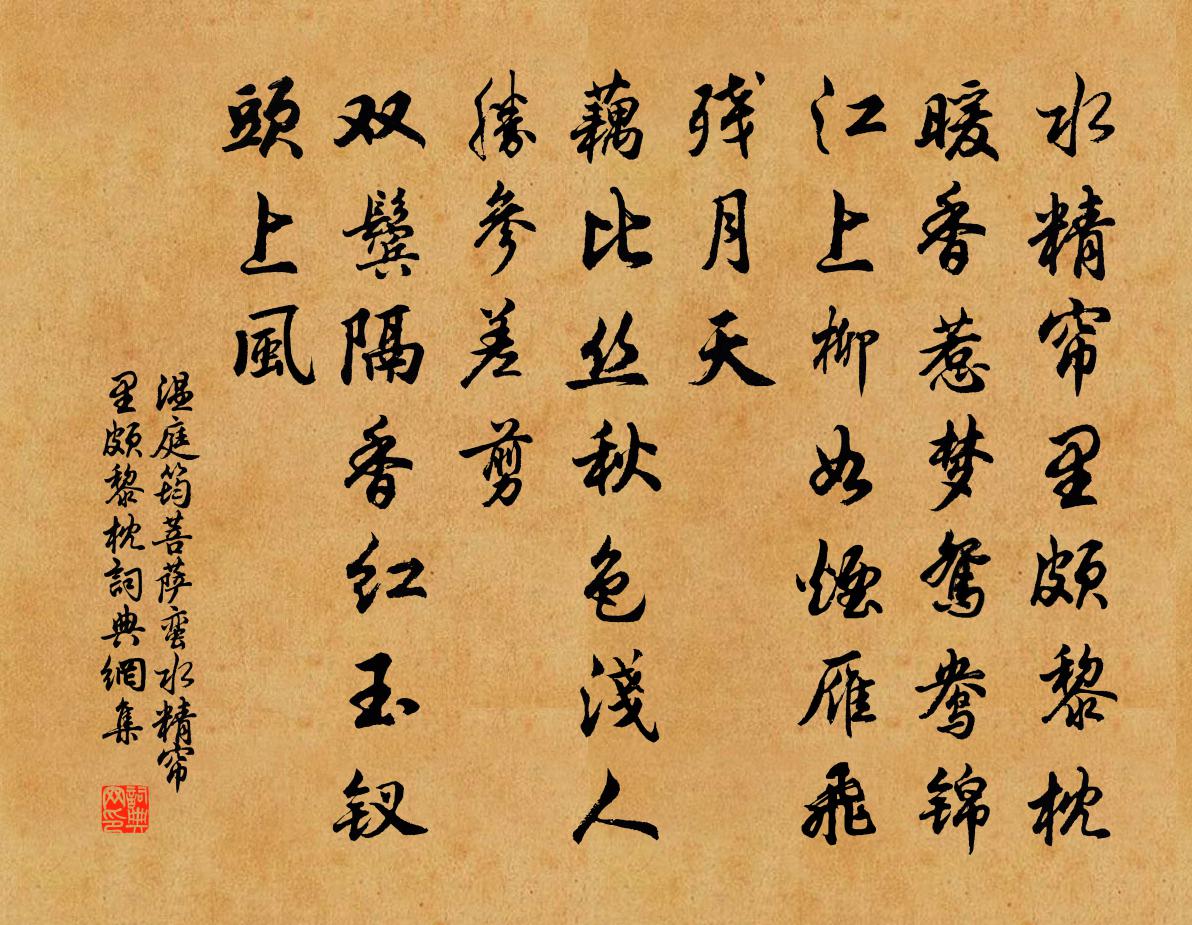 水精帘里颇黎枕
暖香惹梦鸳鸯锦
江上柳如烟雁飞
残月天
藕比丝秋色浅人
勝参差剪
双鬓隔香红玉钗
頭上風
温庭筠菩萨蛮水精帘
里颇黎枕詞典網集
詞典
网印